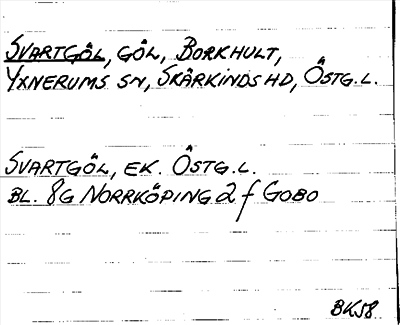 SVARTGÖL, GÖL, BORKHULT,
YXNERUMS SN, SKÄRKINDS HD, ÖSTG.L.
SVARTGÖL, EK. ÖSTG.L.
BL. 8G NORRKÖPING 2 f GOBO
BK58